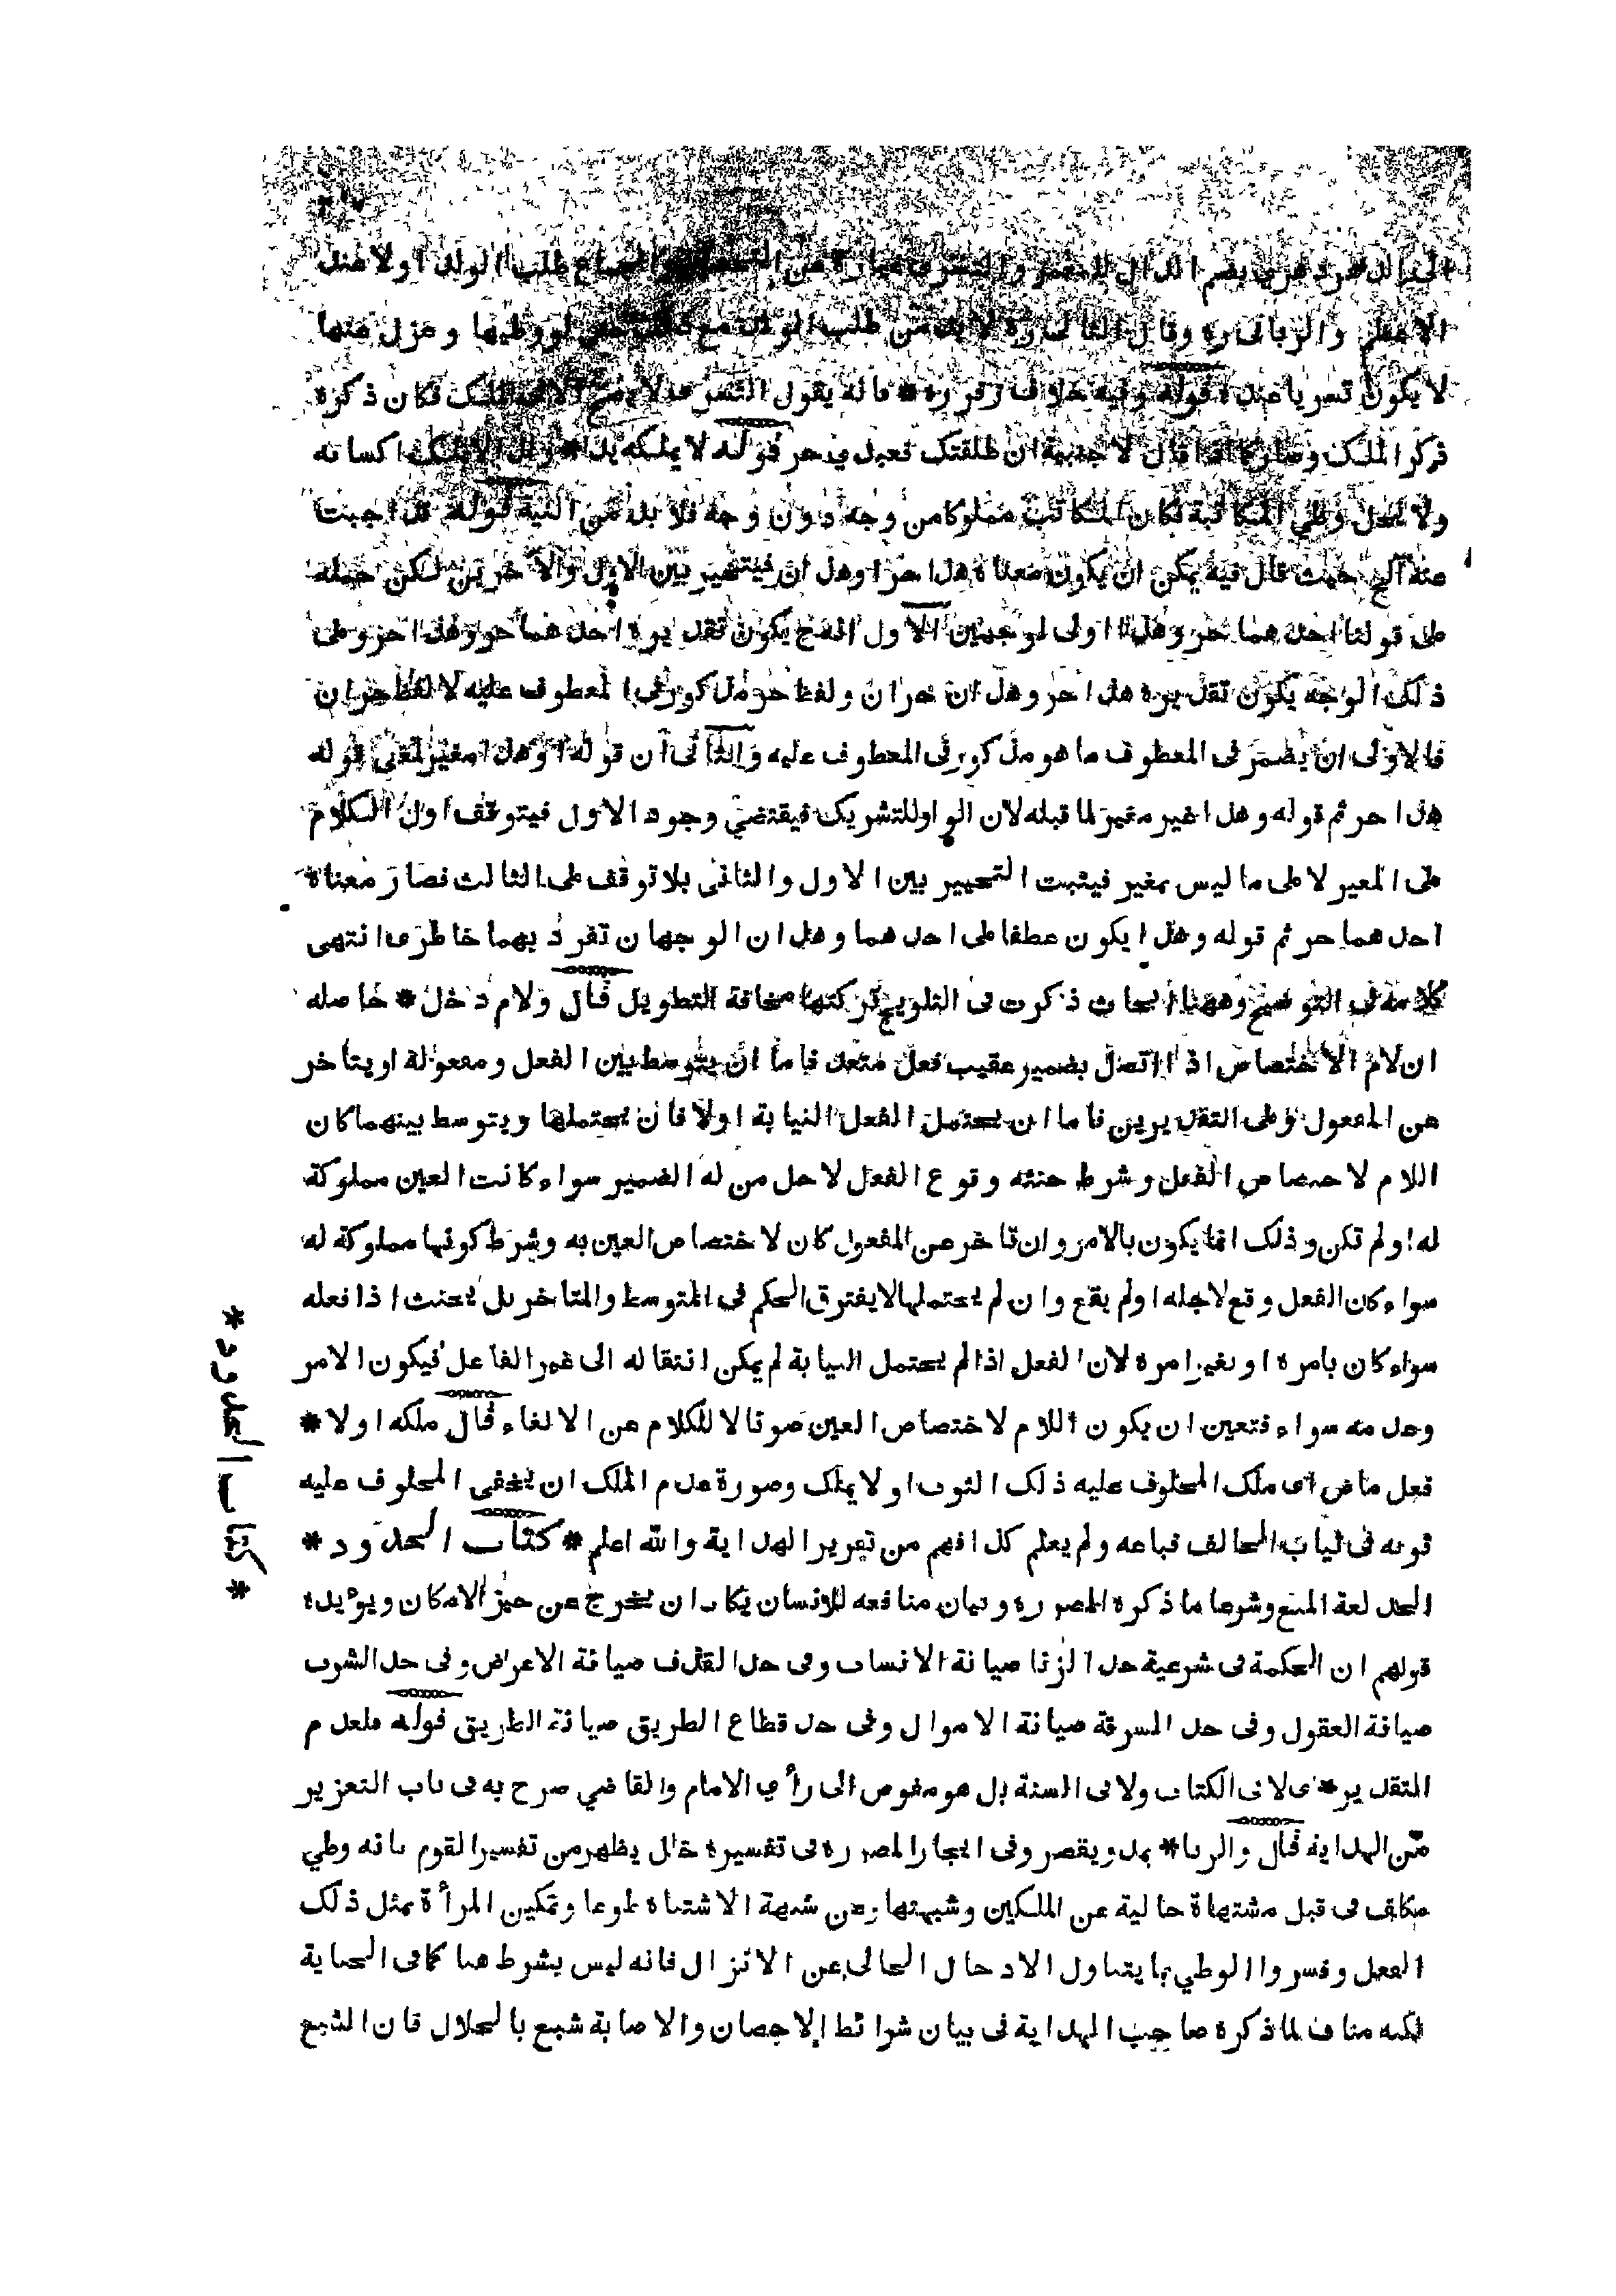 الى الدهر دهرى بضم الدال للمعمر والتسرى عبارة عن التحصين والجماع طلب الولد اولا عند
الاعظم والربانى ره وقال الثانى ره لا بد من طلب الولد مع ذلك حتى لو وطيها وعزل عنها
لا يكون تسريا عنده قوله وفيه خلاف زفر ره * فانه يقول التسرى لا يصح الا فى الملك فكان ذكره
ذكر الملك وصار كما اذا قال لاجنبية ان طلقتك فعبدى حر قوله لا يملكه يدا * ولا يملك اكسابه
ولا يحل وطى المكاتبة فكان المكاتب مملوكا من وجه دون وجه فلا بد من النية قوله قد اجبت
عنه آلخ حيث قال فيه يمكن ان يكون معناه هذا حر او هذان فيتخير بين الاول والآخرين لكن حمله
على قولنا احدهما حر وهذا اولى لوجهين الاول انه ح يكون تقديره احدهما حر وهذا حر وعلى
ذلك الوجه يكون تقديره هذا حر وهذان حران ولفظ حر مذكور فى المعطوف عليه لا لفظ حران
فالاولى ان يضمر فى المعطوف ما هو مذكور فى المعطوف عليه والثانى ان قوله او هذا مغير لمعنى قوله
هذا حر ثم قوله وهذا غير مغير لما قبله لان الواو للتشريك فيقتضي وجود الاول فيتوقف اول الكلام
على المغير لا على ما ليس بمغير فيثبت التخيير بين الاول والثانى بلا توقف على الثالث فصار معناه
احدهما حر ثم قوله وهذا يكون عطفا على احدهما وهذان الوجهان تفرد بهما خاطرى انتهى
كلامه فى التوضيح وههنا ابحاث ذكرت فى التلويح تركتها مخافة التطويل قال ولام دخل * حاصله
ان لام الاختصاص اذا اتصل بضمير عقيب فعل متعد فاما ان يتوسط بين الفعل ومفعوله او يتاخر
عن المفعول وعلى التقديرين فاما ان يحتمل الفعل النيابة اولا فان يحتملها ويتوسط بينهما كان
اللام لاختصاص الفعل وشرط حنثه وقوع الفعل لاجل من له الضمير سواء كانت العين مملوكة
له اولم تكن وذلك انما يكون بالامر وان تاخر عن المفعول كان لاختصاص العين به وشرط كونها مملوكة له
سواء كان الفعل وقع لاجله اولم يقع وان لم يحتملها لا يفترق الحكم فى المتوسط والمتاخر بل يحنث اذا فعله
سواء كان بامره او بغير امره لان الفعل اذا لم يحتمل النيابة لم يمكن انتقاله الى غير الفاعل فيكون الامر
وعدمه سواء فتعين ان يكون اللام لاختصاص العين صونا للكلام عن الالغاء قال ملكه اولا *
فعل ماض اى ملك المحلوف عليه ذلك الثوب او لا يملك وصورة عدم الملك ان يخفى المحلوف عليه
ثوبه فى ثياب الحالف فباعه ولم يعلم كذا فهم من تقرير الهداية والله اعلم * كتاب الحدود *
الحد لغة المنع وشرعا ما ذكره المص ره وبيان منافعه للانسان يكاد ان يخرج عن حيز الامكان ويؤيده
قولهم ان الحكمة فى شرعية حد الزنا صيانة الانساب وفى حد القذف صيانة الاعراض وفى حد الشرب
صيانة العقول وفى حد السرقة صيانة الاموال وفى حد قطاع الطريق صيانة الطريق قوله فلعدم
التقدير * اى لا فى الكتاب ولا فى السنة بل هو مفوض الى رأي الامام والقاضي صرح به فى باب التعزير
من الهداية قال والزنا * يمد ويقصر وفى ايجاز المص ره فى تفسيره خلل يظهر من تفسير القوم بانه وطي
مكلف فى قبل مشتهاة خالية عن الملكين وشبهتهما وعن شبهة الاشتباه طوعا وتمكين المرأة بمثل ذلك
الفعل وفسروا الوطي بما يتناول الادخال الخالى عن الانزال فانه ليس بشرط هنا كما فى الجناية
لكنه مناف لما ذكره صاحب الهداية فى بيان شرائط الاحصان والاصابة شبع بالحلال فان الشبع
* كتاب الحدود *